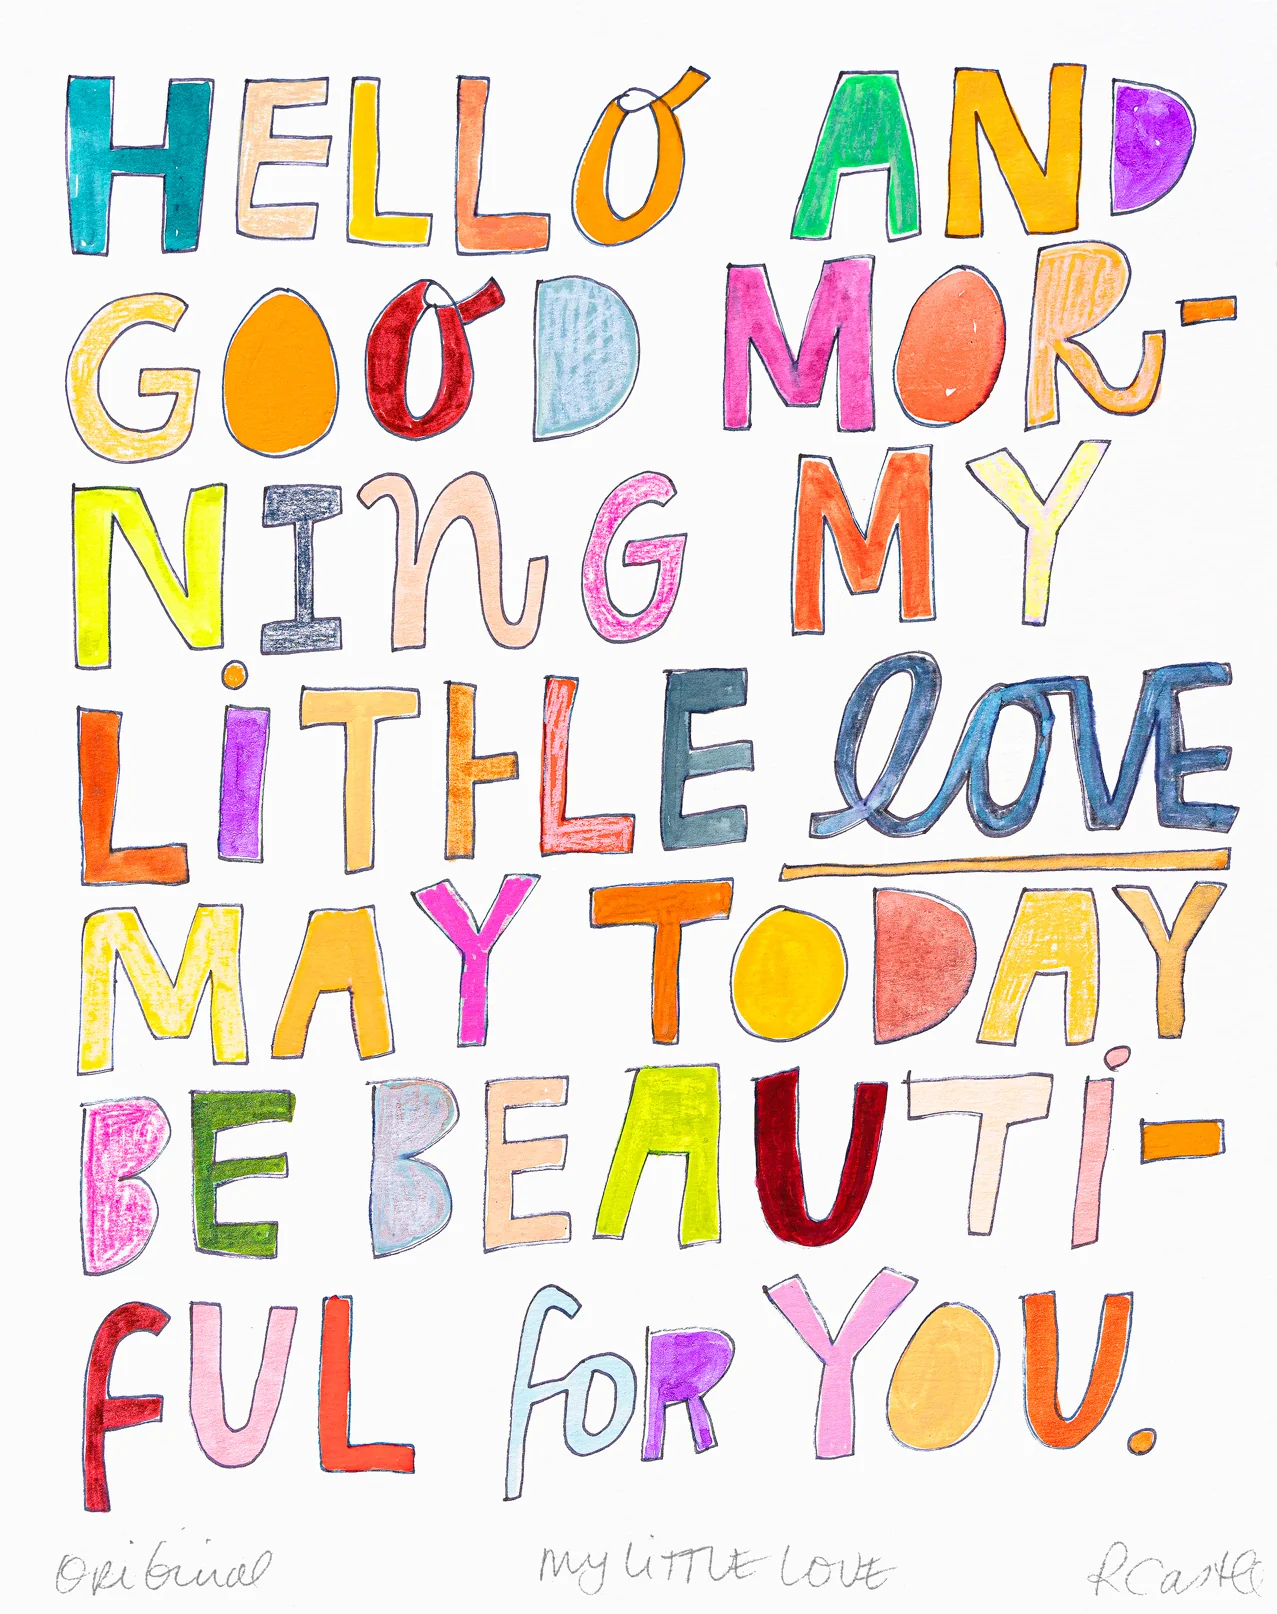 HELLO AND
GOOD MOR-
NING MY
LiTTLE lOVE
MAY TODAY
BE BEAUTi-
fUL foR YOU.
ORiGinal My LiTTLE LOVE RCastle